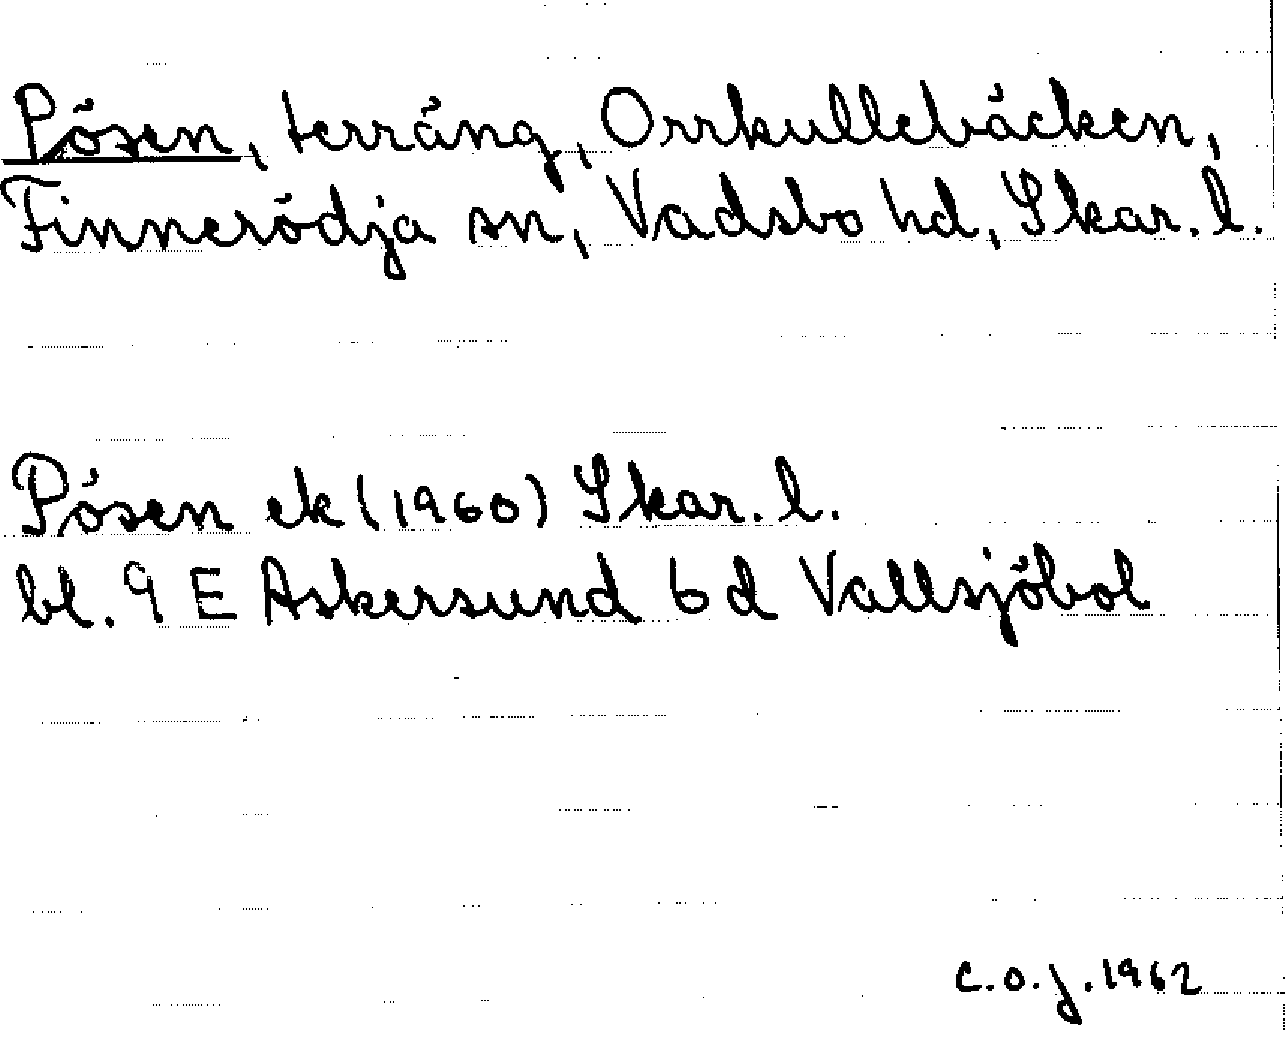 Pösen, terräng, Orrkullebäcken,
Finnerödja sn, Vadsbo hd, Skar. l.
Pösen ek (1960) Skar. l.
bl. 9 E Askersund 6 d Vallsjöbol
C.O.J. 1962